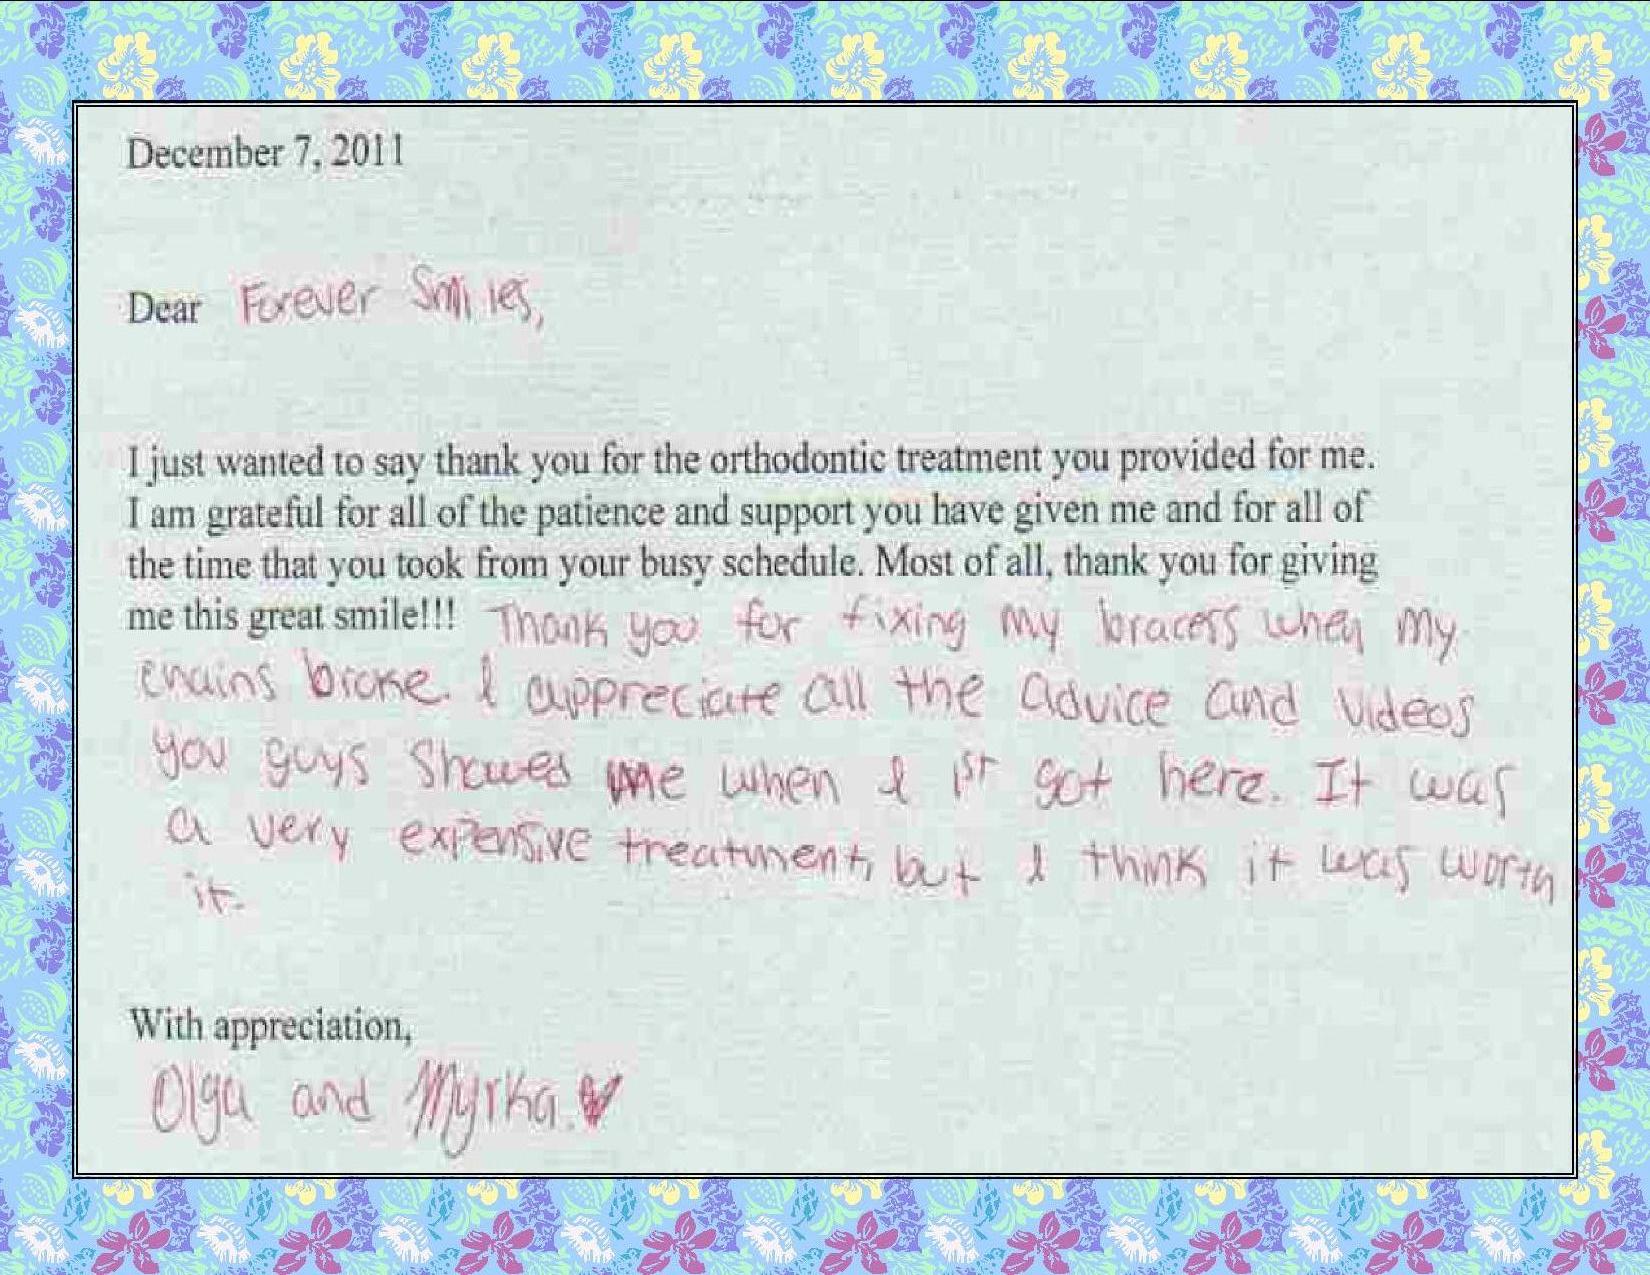 December 7, 2011
Dear Forever Smiles,
I just wanted to say thank you for the orthodontic treatment you provided for me.
I am grateful for all of the patience and support you have given me and for all of
the time that you took from your busy schedule. Most of all, thank you for giving
me this great smile!!! Thank you for fixing my braces when my
chains broke. I appreciate all the advice and videos
you guys showed me when I 1st got here. It was
a very expensive treatment, but I think it was worth
it.
With appreciation,
Olga and Myrka.